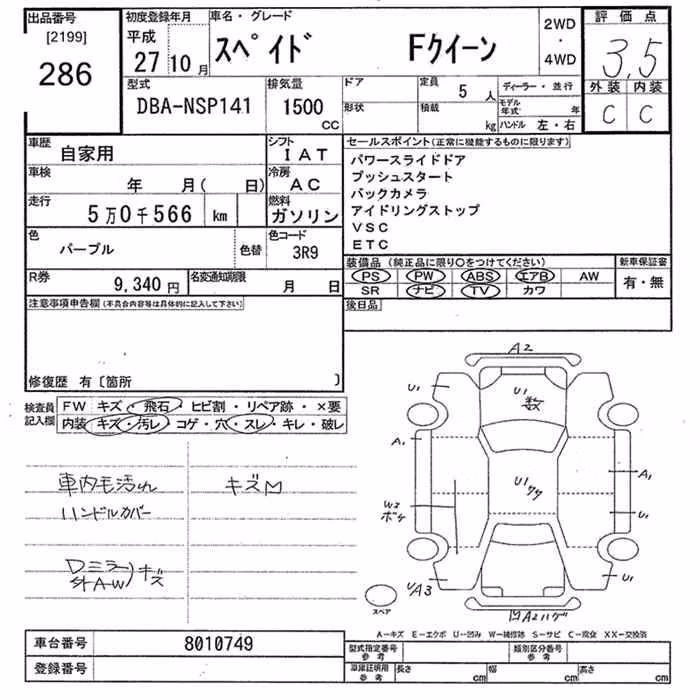 出品番号
[2199]
286
初度登録年月
平成
27 10 月
車名・グレード
スペイド Fクイーン
2WD
・
4WD
評価点
3.5
外装 内装
C C
型式
DBA-NSP141
排気量
1500
CC
ドア
形状
定員
5 人
積載
kg
ディーラー・並行
モデル年式 年
ハンドル 左・右
車歴
自家用
シフト
IAT
車検
年 月( 日)
冷房
AC
走行
5万0千566 km
燃料
ガソリン
色
パープル
色替
色コード
3R9
R券
9,340 円
名変通知期限
月 日
セールスポイント(正常に機能するものに限ります)
パワースライドドア
プッシュスタート
バックカメラ
アイドリングストップ
VSC
ETC
装備品 (純正品に限り○をつけてください)
PS PW ABS エアB AW
SR ナビ TV カワ
新車保証書
有・無
後日品
注意事項申告欄(不具合内容等は具体的に記入して下さい)
修復歴 有〔箇所 〕
検査員
記入欄
FW キズ・飛石・ヒビ割・リペア跡・×要
内装 キズ・汚レ・コゲ・穴・スレ・キレ・破レ
車内毛汚れ キズM
ハンドルカバー
Dミラー
外A-W
キズ
A2
U1
U1
数
U1
A1
A1
U1
ワク
W3
ボケ
U1
U/A3
U1
凹A2ハゲ
スペア
A-キズ E-エクボ U-凹み W-補修跡 S-サビ C-腐食 XX-交換済
車台番号
8010749
登録番号
型式指定番号
参考
類別区分番号
参考
車庫証明用
参考
長さ cm
幅 cm
高さ cm